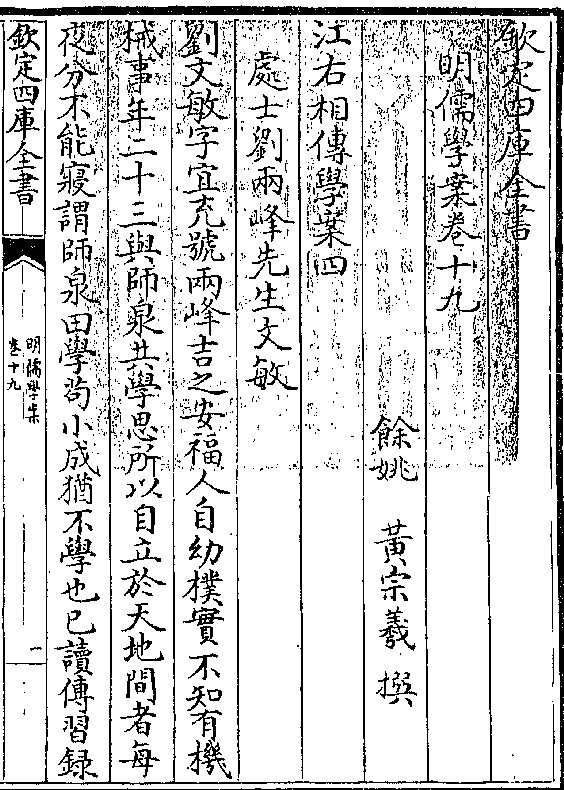 欽定四庫全書
明儒學案卷十九
餘姚 黃宗羲 撰
江右相傳學案四
處士劉兩峰先生文敏
劉文敏字宜充號兩峰吉之安福人自幼樸實不知有機
械事年二十三與師泉共學思所以自立於天地間者每
夜分不能寢謂師泉曰學茍小成猶不學也已讀傳習録
欽定四庫全書
明儒學案
卷十九
一